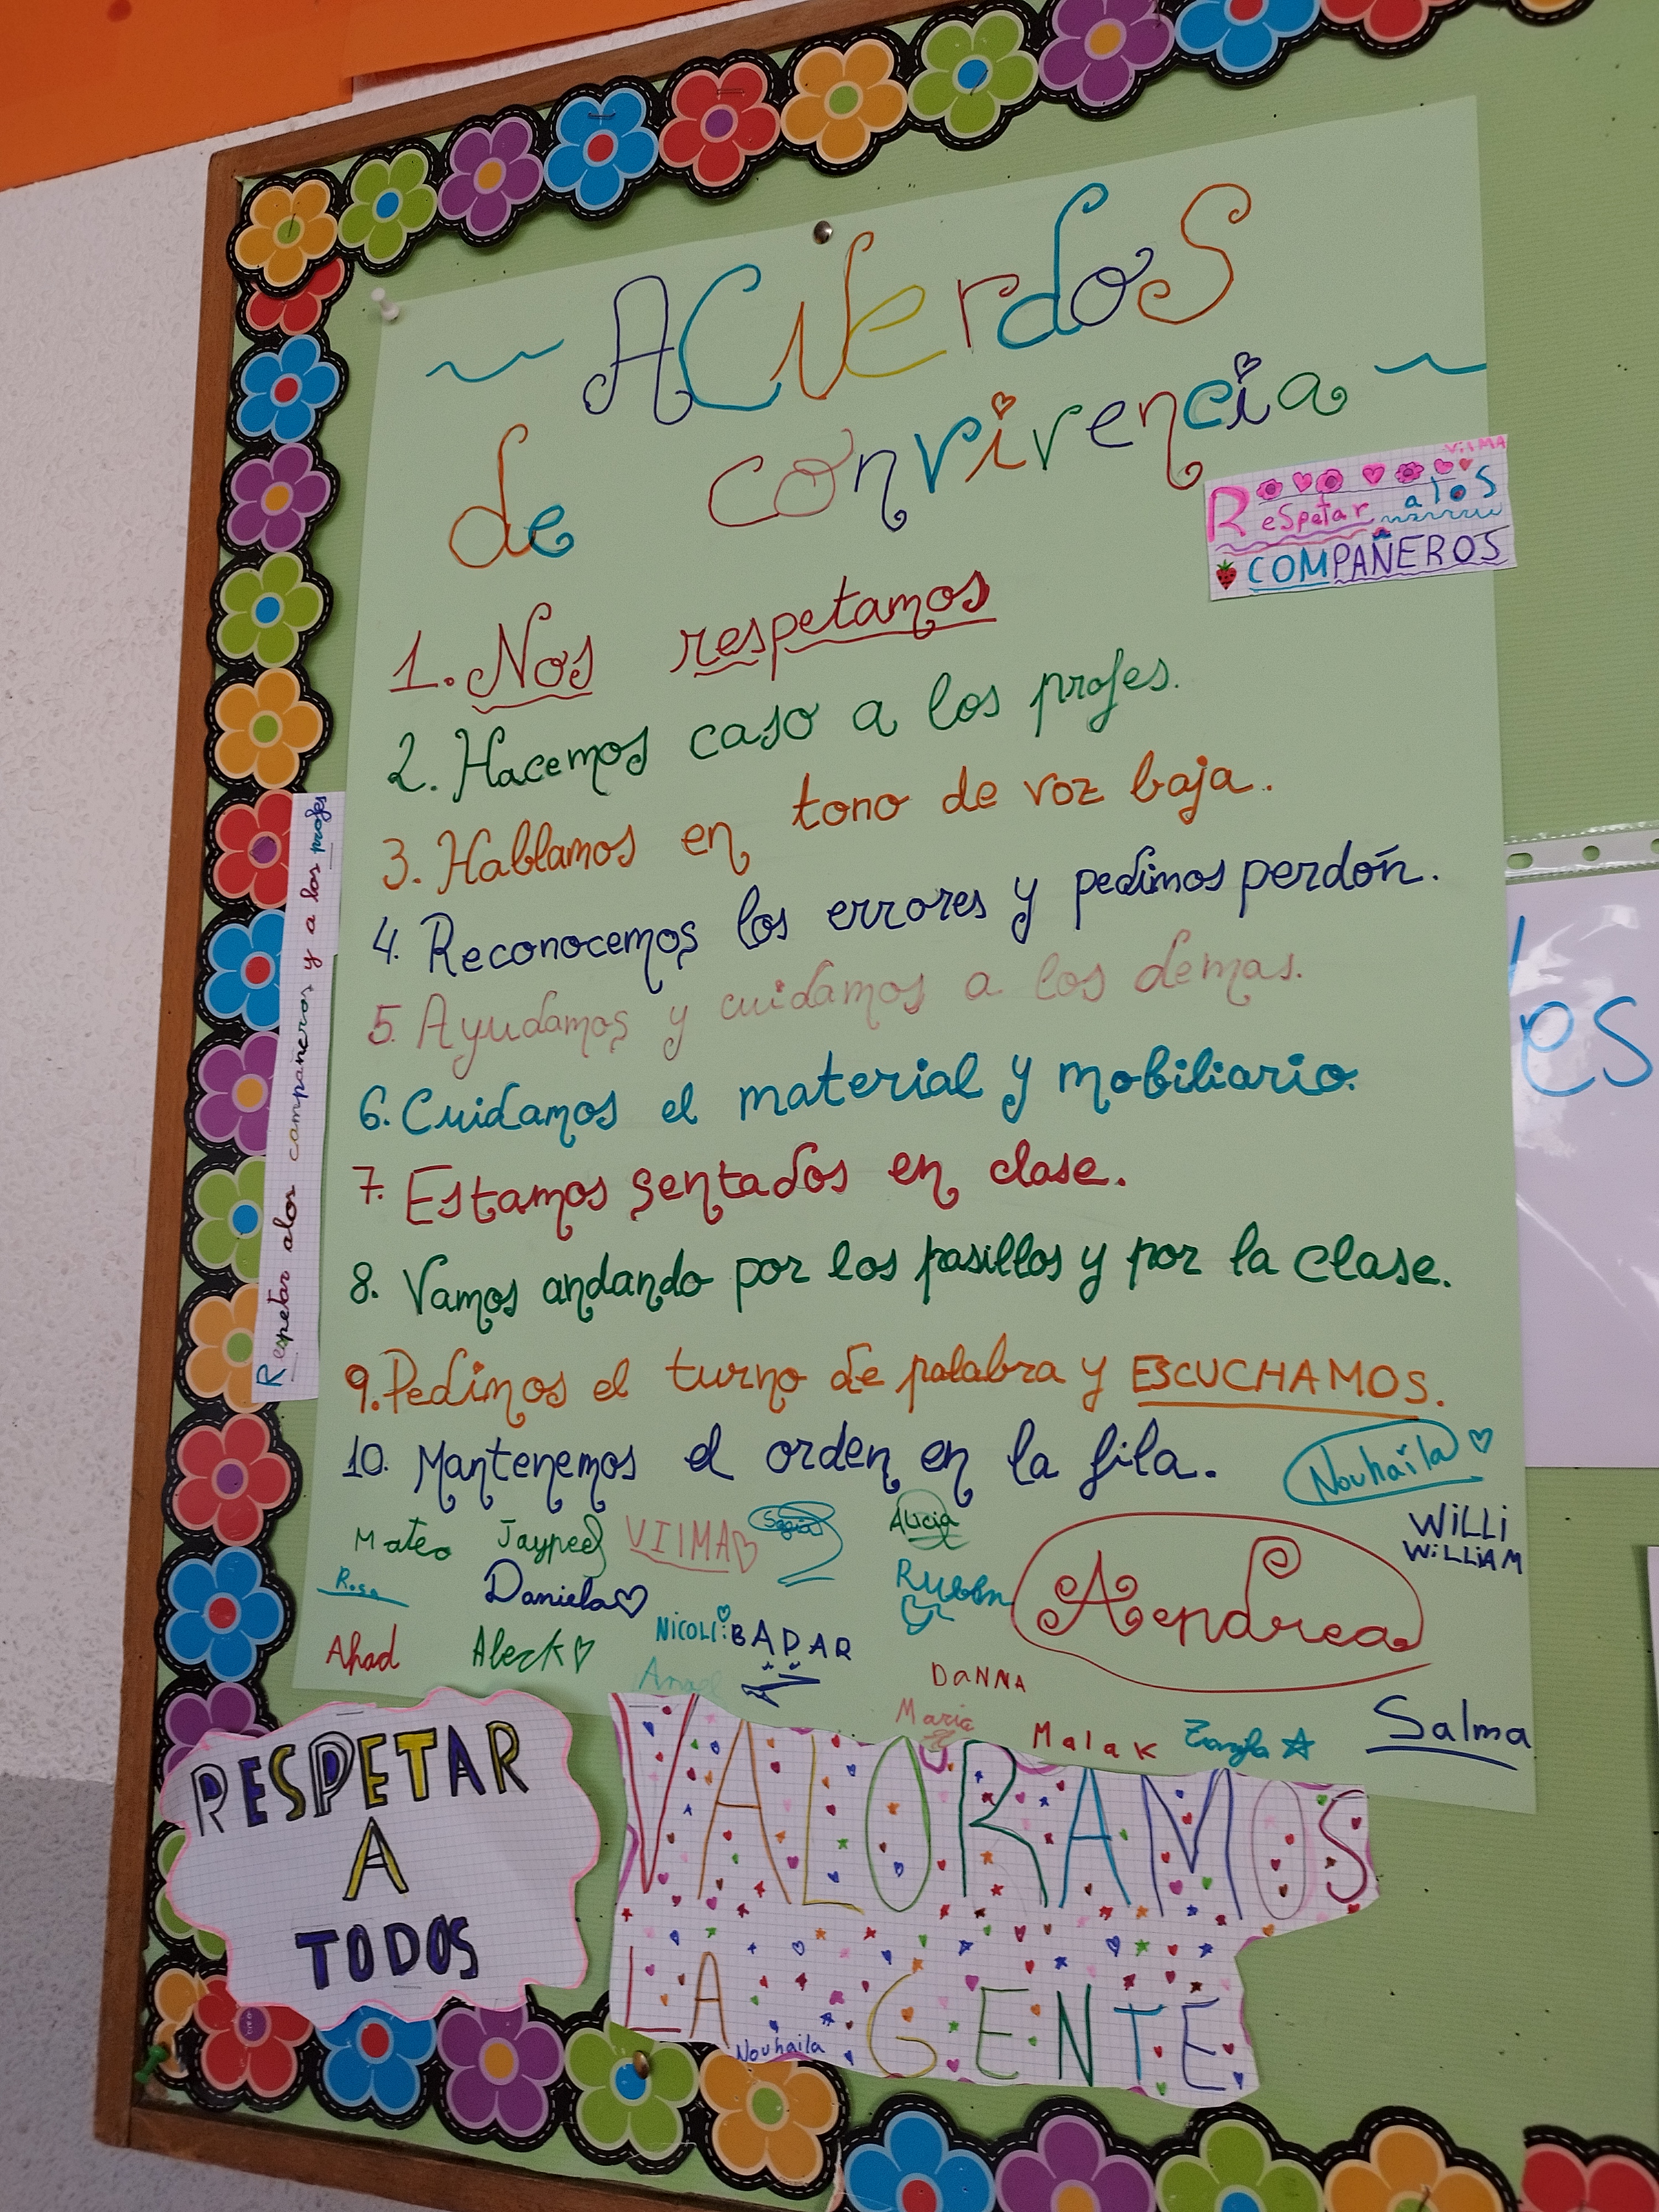 ACUerdos
de convivencia
VILMA
Respetar a los
COMPAÑEROS
1. Nos respetamos
2. Hacemos caso a los profes.
3. Hablamos en tono de voz baja.
4. Reconocemos los errores y pedimos perdón.
5. Ayudamos y cuidamos a los demas.
6. Cuidamos el material y mobiliario.
7. Estamos sentados en clase.
8. Vamos andando por los pasillos y por la clase.
9. Pedimos el turno de palabra y ESCUCHAMOS.
10. Mantenemos el orden en la fila.
Respetar alos compañeros y a los profes
es
Nouhaila
Mateo Jaypee VILMA Alicia WiLLi
WiLLiAM
Rosa Daniela Ruben Aendrea
NiCOLi BADAR
Ahad Aleck DaNNA
Maria Malak Salma
RESPETAR
A
TODOS
VALORAMOS
LA GENTE
Nouhaila